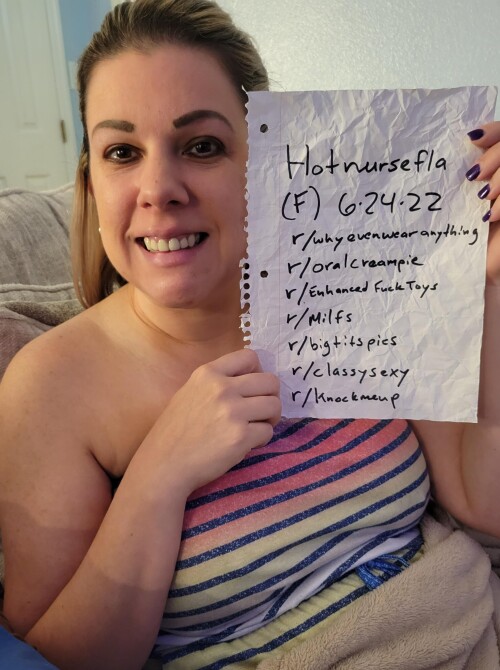 Hotnursefla
(F) 6.24.22
r/whyevenwearanything
r/oralcreampie
r/Enhanced FuckToys
r/Milfs
r/bigtitspics
r/classysexy
r/knockmeup